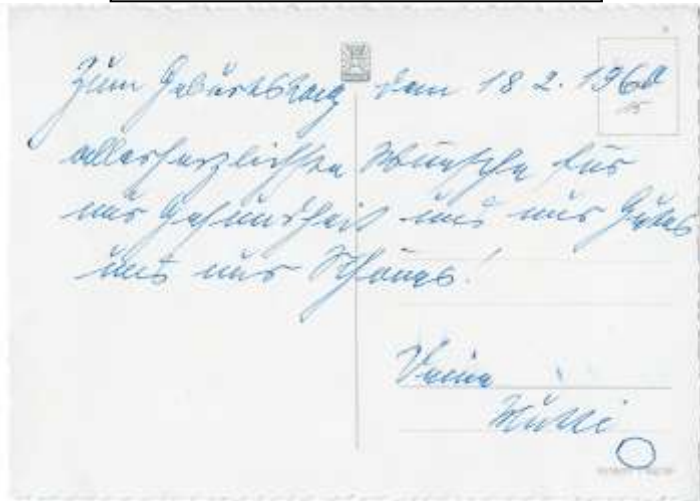 Zum Geburtstag dem 18 2. 1960
15
allerherzlichsten Wünsche für
nur Gesundheit und nur Gutes
und nur Schönes!
Deine
Mutti